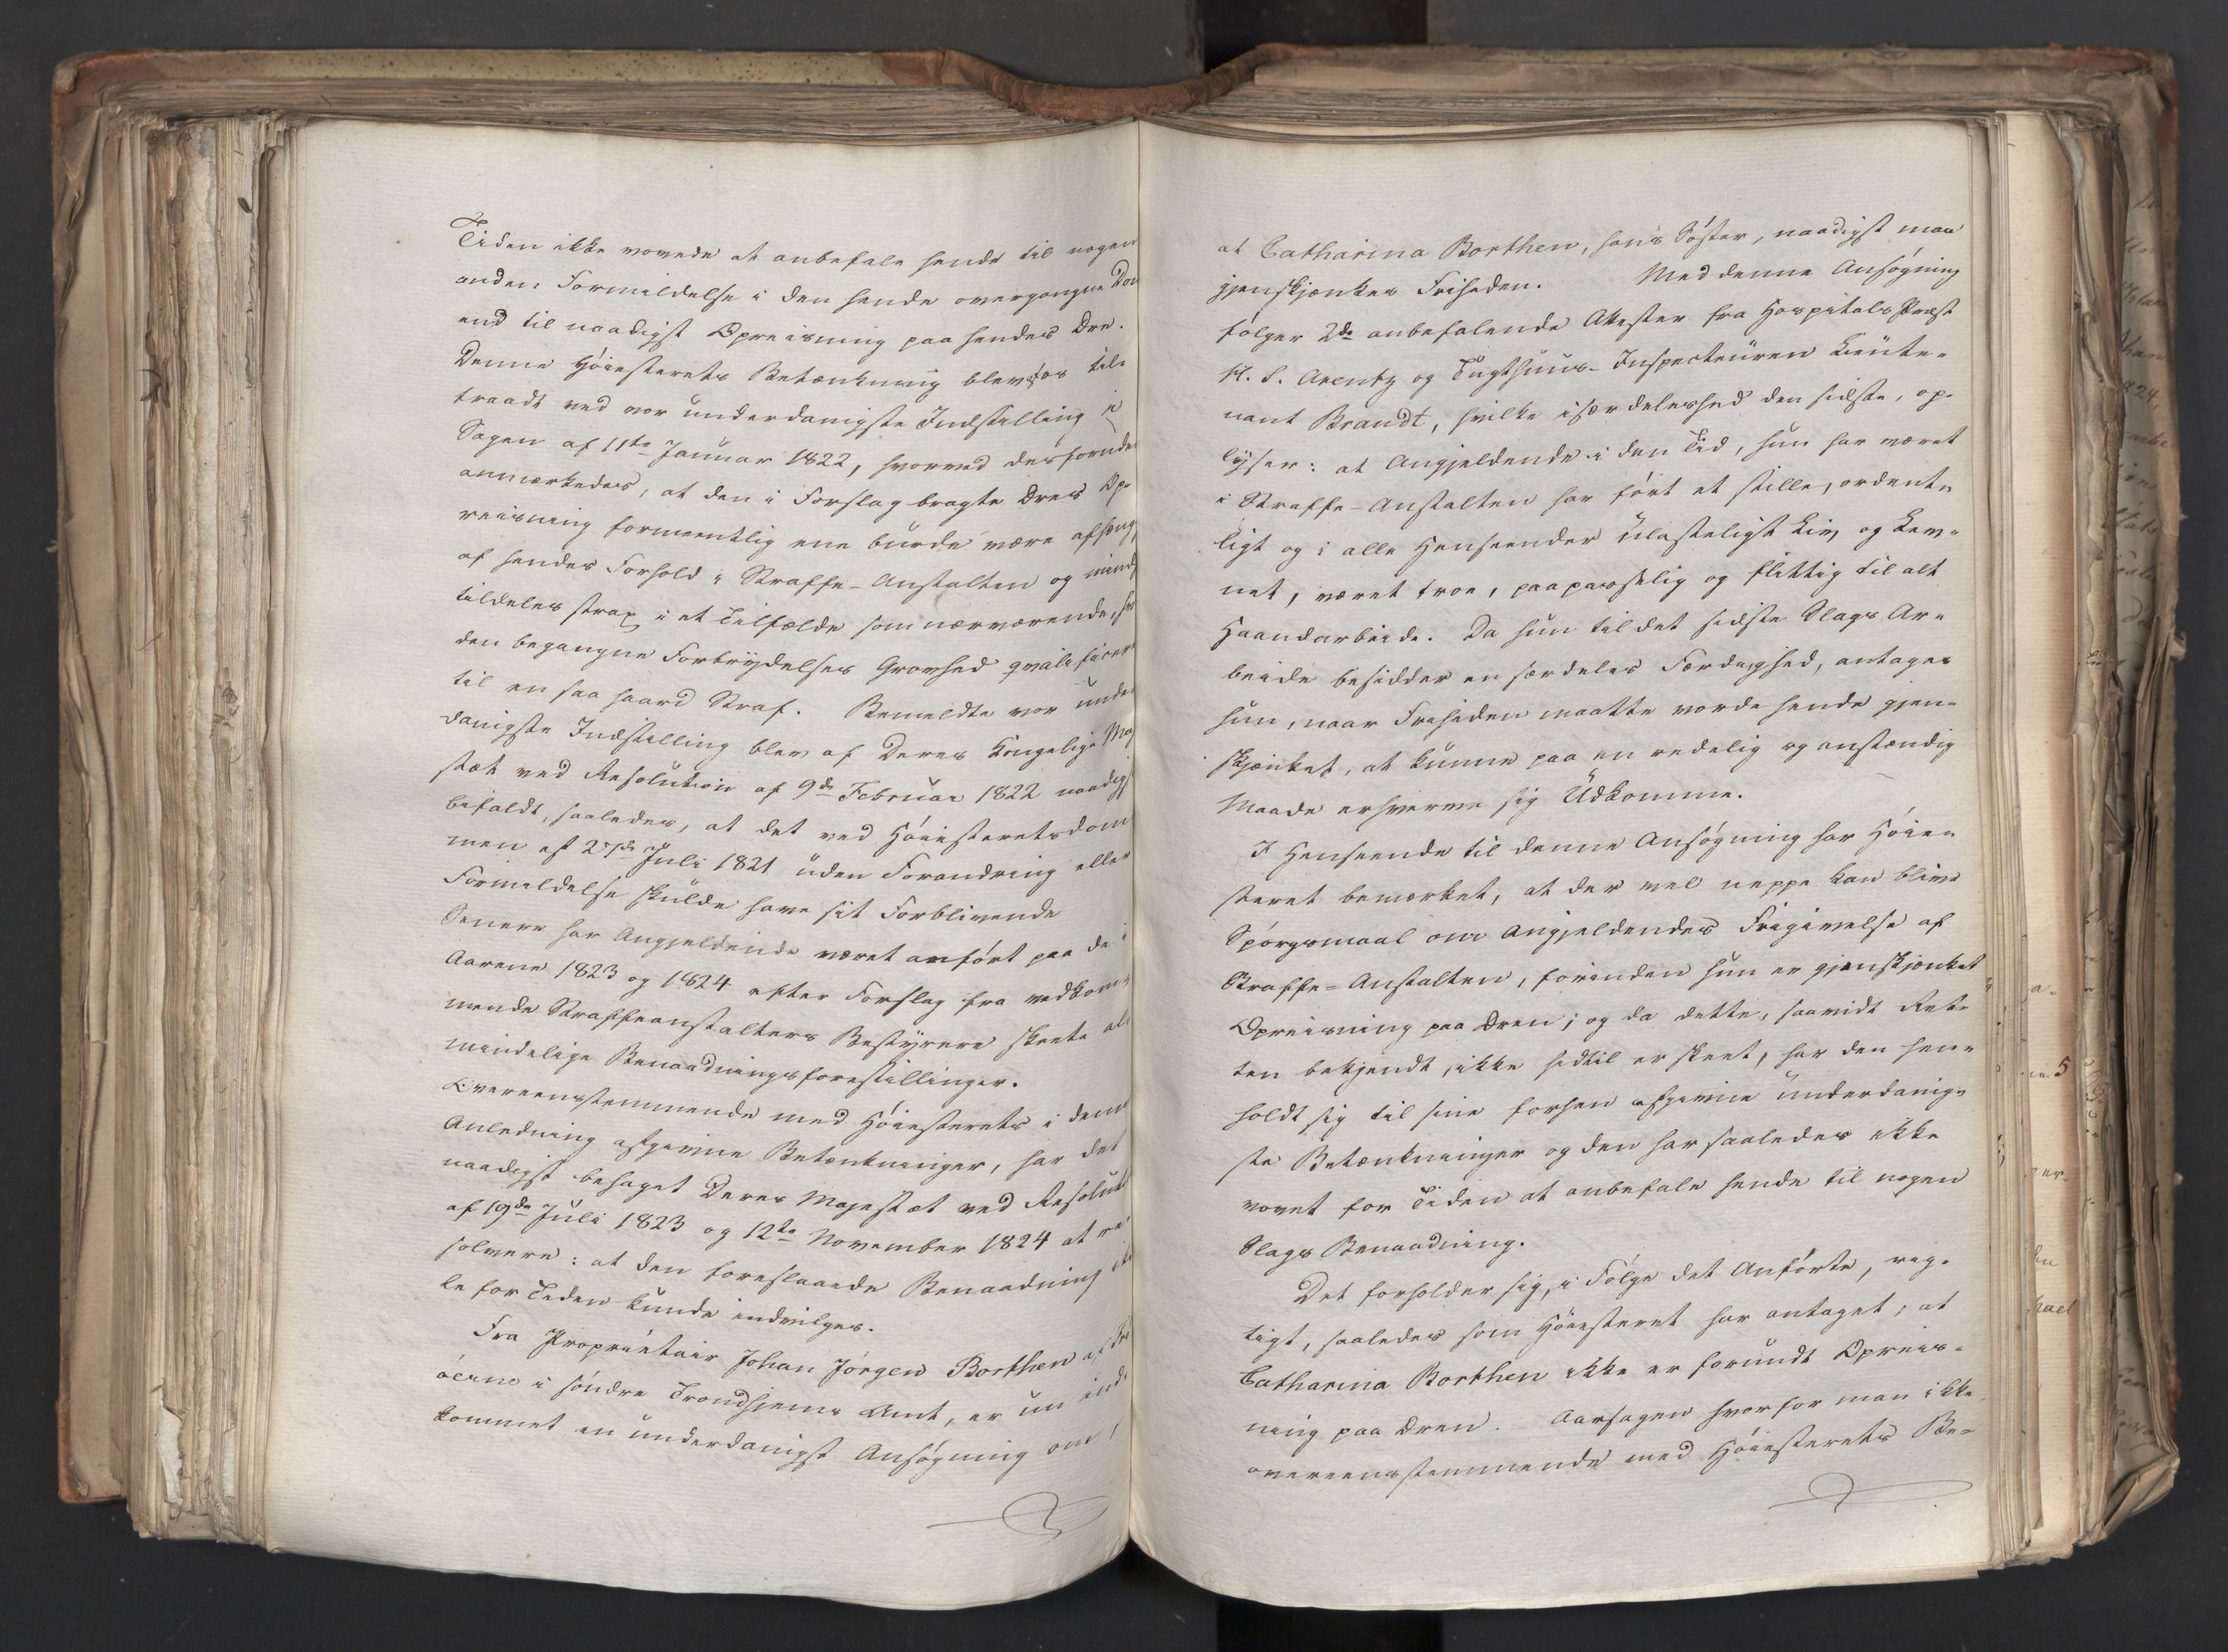 Tiden ikke vovede at anbefale hende til nogen
anden Formildelse i den hende overgangne Dom
end til naadigst Opreisning paa hendes Ære.
Denne Høiesterets Betænkning blev os til-
traadt ved vor underdanigste Indstilling i
Sagen af 11te Januar 1822, hvorved desforuden
anmærkedes, at den i Forslag bragte Æres Op-
reisning formeentlig ene burde være afhæng
af hendes Forhold i Straffe-Anstalten og
tildeles strax i et Tilfælde som nærværende,
den begangne Forbrydelses Grovhed qvalificere
til en saa haard Straf. Bemeldte vor under
danigste Indstilling blev af Deres Kongelige Maj
stæt ved Resolution af 9de Februar 1822 naadigst
bifaldt, saaledes, at det ved Høiesteretsdom
men af 27de Juli 1821 uden Forandring eller
Formildelse skulde have sit Forblivende
Senere har Angjeldende været anført paa de i
Aarene 1823 og 1824 efter Forslag fra vedkom-
mende Straffeanstalters Bestyrere skeete al-
mindelige Benaadningsforestillinger.
Overeensstemmende med Høiesterets i denne
Anledning afgivne Betænkninger, har det
naadigst behaget Deres Majestæt ved Resolut
af 19de Juli 1823 og 12te November 1824 at re
solvere: at den foreslaaede Benaadning ik
ke for Tiden kunde indvilges.
Fra Proprietair Johan Jørgen Borthen af
öerne i søndre Trondhjems Amt, er nu ind-
kommet en underdanigst Ansøgning om,
at Catharina Borthen, hans Søster, naadigst maa
gjenskjænkes Friheden. Med denne Ansøgning
følger 2de anbefalende Attester fra Hospitals Præst
H. S. Arentz og Tugthuus-Inspecteuren Lieute-
nant Brandt, hvilke i særdeleshed den sidste, op-
lyser: at Angjeldende i den Tid, hun har været
i Straffe-Anstalten har ført et stille, ordent-
ligt og i alle Henseender ulasteligt Liv og Lev-
net, været troe, paapasselig og flittig til alt
Haandarbeide. Da hun til det sidste Slags Ar-
beide besidder en særdeles Færdighed, antages
hun, naar Friheden maatte vorde hende gjen-
skjænket, at kunne paa en redelig og anstændig
Maade erhverve sig Udkomme.
I Henseende til denne Ansøgning har Høie-
steret bemærket, at der vel neppe kan blive
Spørgsmaal om Angjeldendes Frigivelse af
Straffe-Anstalten, forinden hun er gjenskjænket
Opreisning paa Æren; og da dette, saavidt Ret-
ten bekjendt, ikke hidtil er skeet, har den hen-
holdt sig til sine forhen afgivne underdanig-
ste Betænkninger og den har saaledes ikke
vovet for Tiden at anbefale hende til nogen
Slags Benaadning.
Det forholder sig, i Følge det Anførte, rig-
tigt, saaledes som Høiesteret har antaget, at
Catharina Borthen ikke er forundt Opreis-
ning paa Æren. Aarsagen hvorfor man ikke
overeensstemmende med Høiesterets Be-